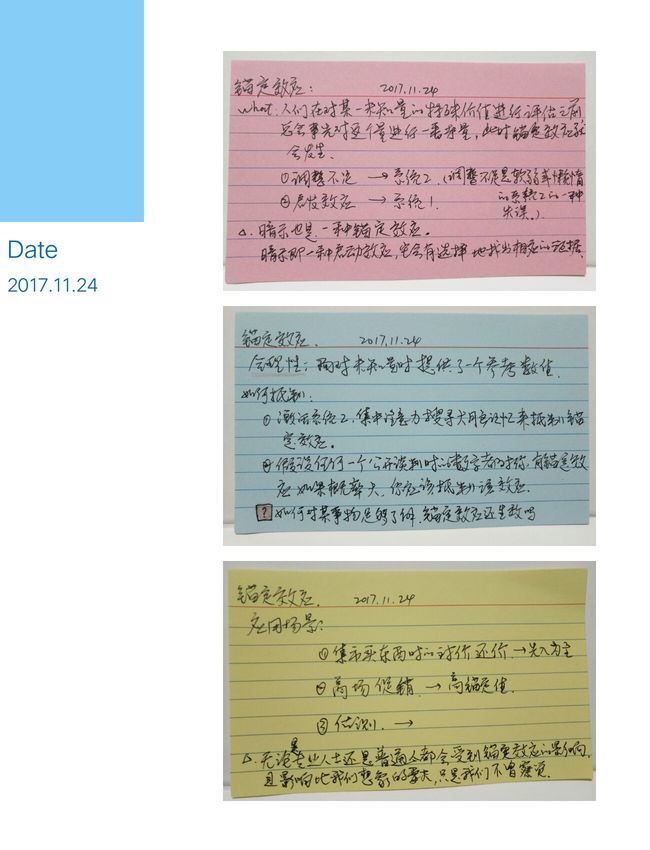 Date
2017.11.24
锚定效应: 2017.11.24
what: 人们在对某一未知量的特殊价值进行评估之前
总会事先对这个量进行一番考量,此时锚定效应就
会发生.
①调整不足 → 系统2.(调整不足是软弱或懒惰
②启发效应 → 系统1. 的系统2的一种
失误.)
△.暗示也是一种锚定效应.
暗示即一种启动效应,它会有选择地找出相应的证据.
锚定效应. 2017.11.24
合理性: 面对未知量时提供了一个参考数值.
如何抵制:
①激活系统2,集中注意力搜寻大用 记忆来抵制锚
定效应。
②假设任何一个公开谈判时的数字都对你有锚定效
应 如果概率大,你应该抵制该效应.
? 如何对某事物足够了解,锚定效应还生效吗
锚定效应. 2017.11.24
应用场景:
①集市买东西时的讨价还价 → 先入为主
②商场促销 → 高锚定值.
③ →
△.无论是专业人士还是普通人都会受到锚定效应的影响,
且影响比我们想象的要大,只是我们不曾察觉.